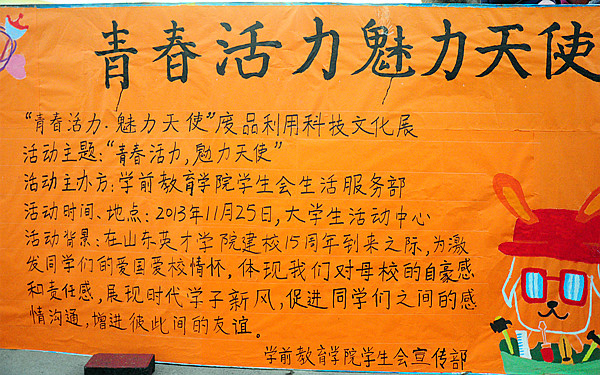 青春活力魅力天使
“青春活力·魅力天使”废品利用科技文化展
活动主题:“青春活力,魅力天使”
活动主办方:学前教育学院学生会生活服务部
活动时间、地点:2013年11月25日,大学生活动中心
活动背景:在山东英才学院建校15周年到来之际,为激
发同学们的爱国爱校情怀,体现我们对母校的自豪感
和责任感,展现时代学子新风,促进同学们之间的感
情沟通,增进彼此间的友谊。
学前教育学院学生会宣传部